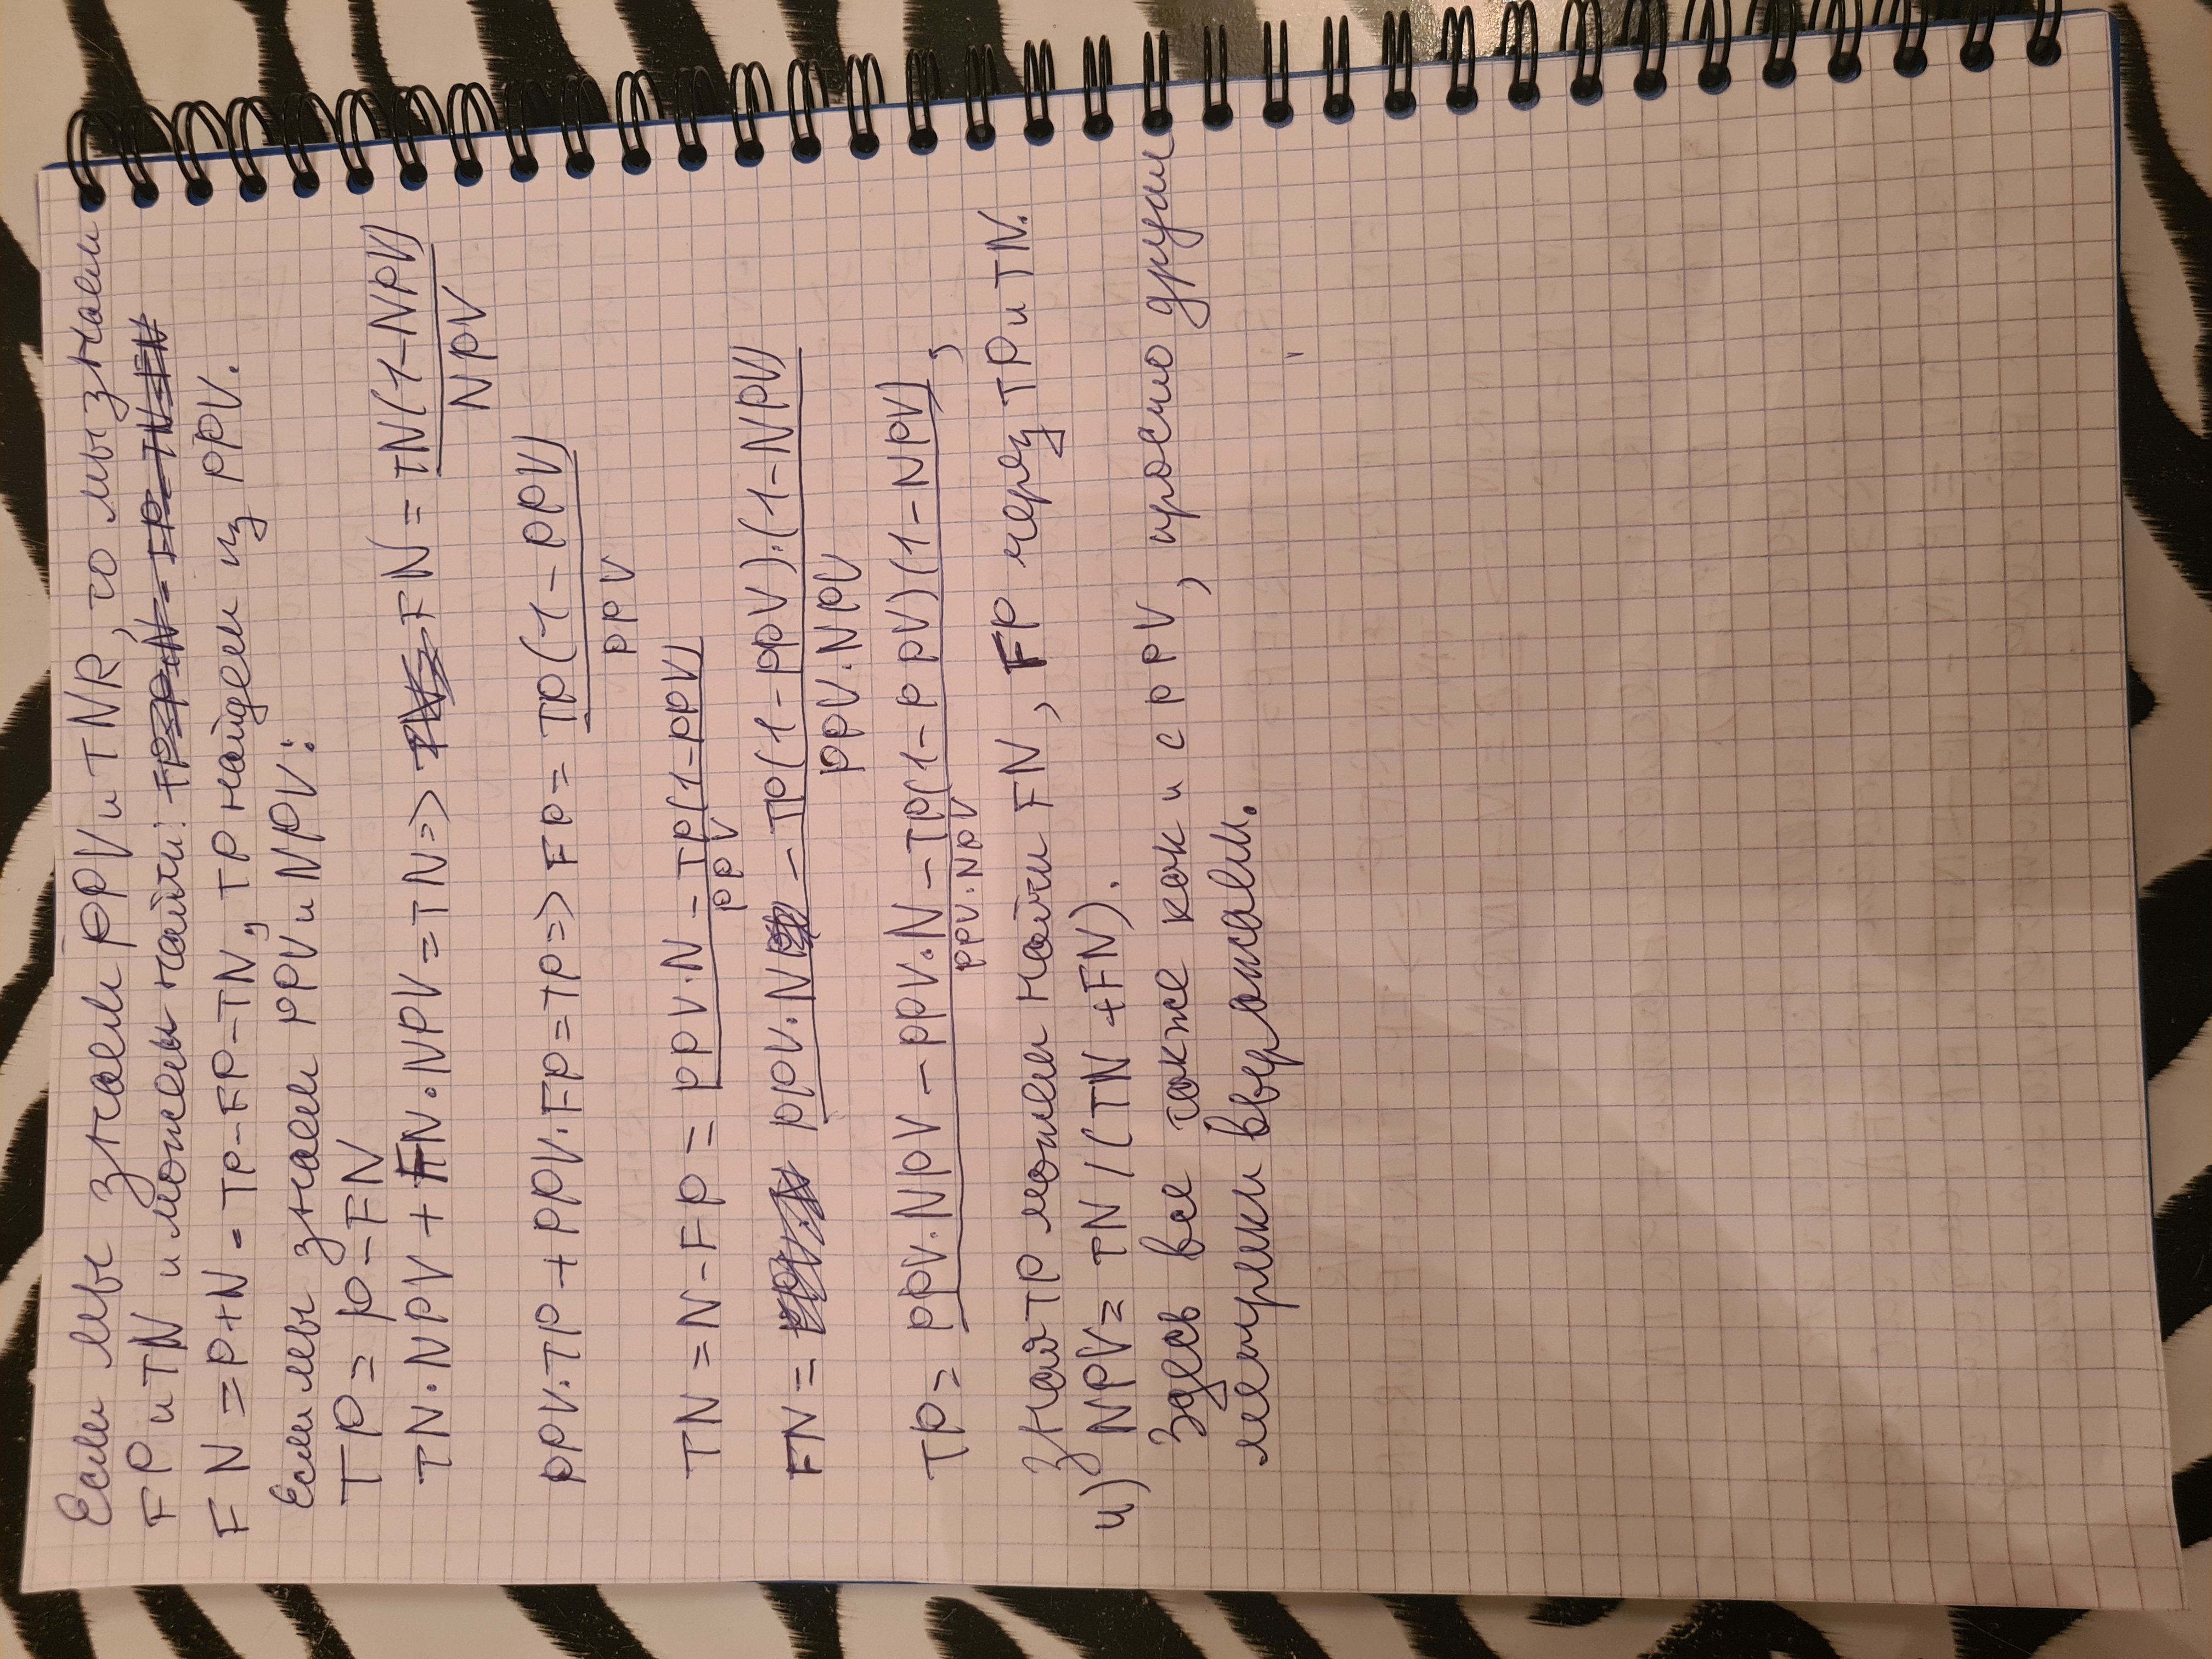 Если мы знаем PPV и TNR, то мы знаем
FP и TN и можем найти:
FN = P+N - TP-FP-TN, TP найдем из PPV.
Если мы знаем PPV и NPV:
TP = P - FN
TN·NPV + FN·NPV = TN => FN = TN(1-NPV) / NPV
PPV·TP + PPV·FP = TP => FP = TP(1-PPV) / PPV
TN = N-FP = PPV·N - TP(1-PPV) / PPV
FN = PPV·N - TP(1-PPV)·(1-NPV) / PPV·NPV
TP = PPV·NPV - PPV·N - TP(1-PPV)(1-NPV) / PPV·NPV,
зная TP можем найти FN, FP через TP и TN.
4) NPV = TN / (TN + FN).
Здесь все также как и с PPV, просто другие
метрики выражаем.